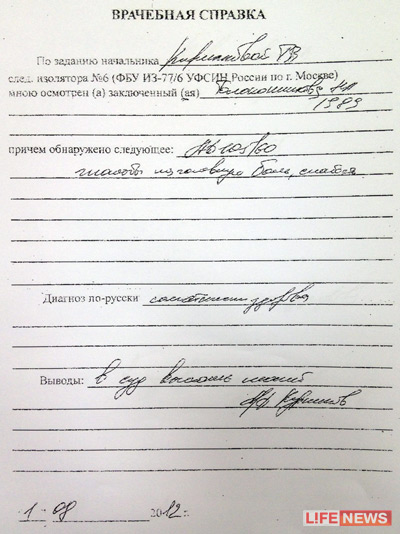 ВРАЧЕБНАЯ СПРАВКА
По заданию начальника Кирилловой ТВ
след. изолятора №6 (ФБУ ИЗ-77/6 УФСИН России по г. Москве)
мною осмотрен (а) заключенный (ая) Толоконникова НА
1989
причем обнаружено следующее: АД 105/60
жалобы на головную боль, слабость
Диагноз по-русски соматически здорова
Выводы: в суд выехать может
1 08 2012 г.
LIFE NEWS